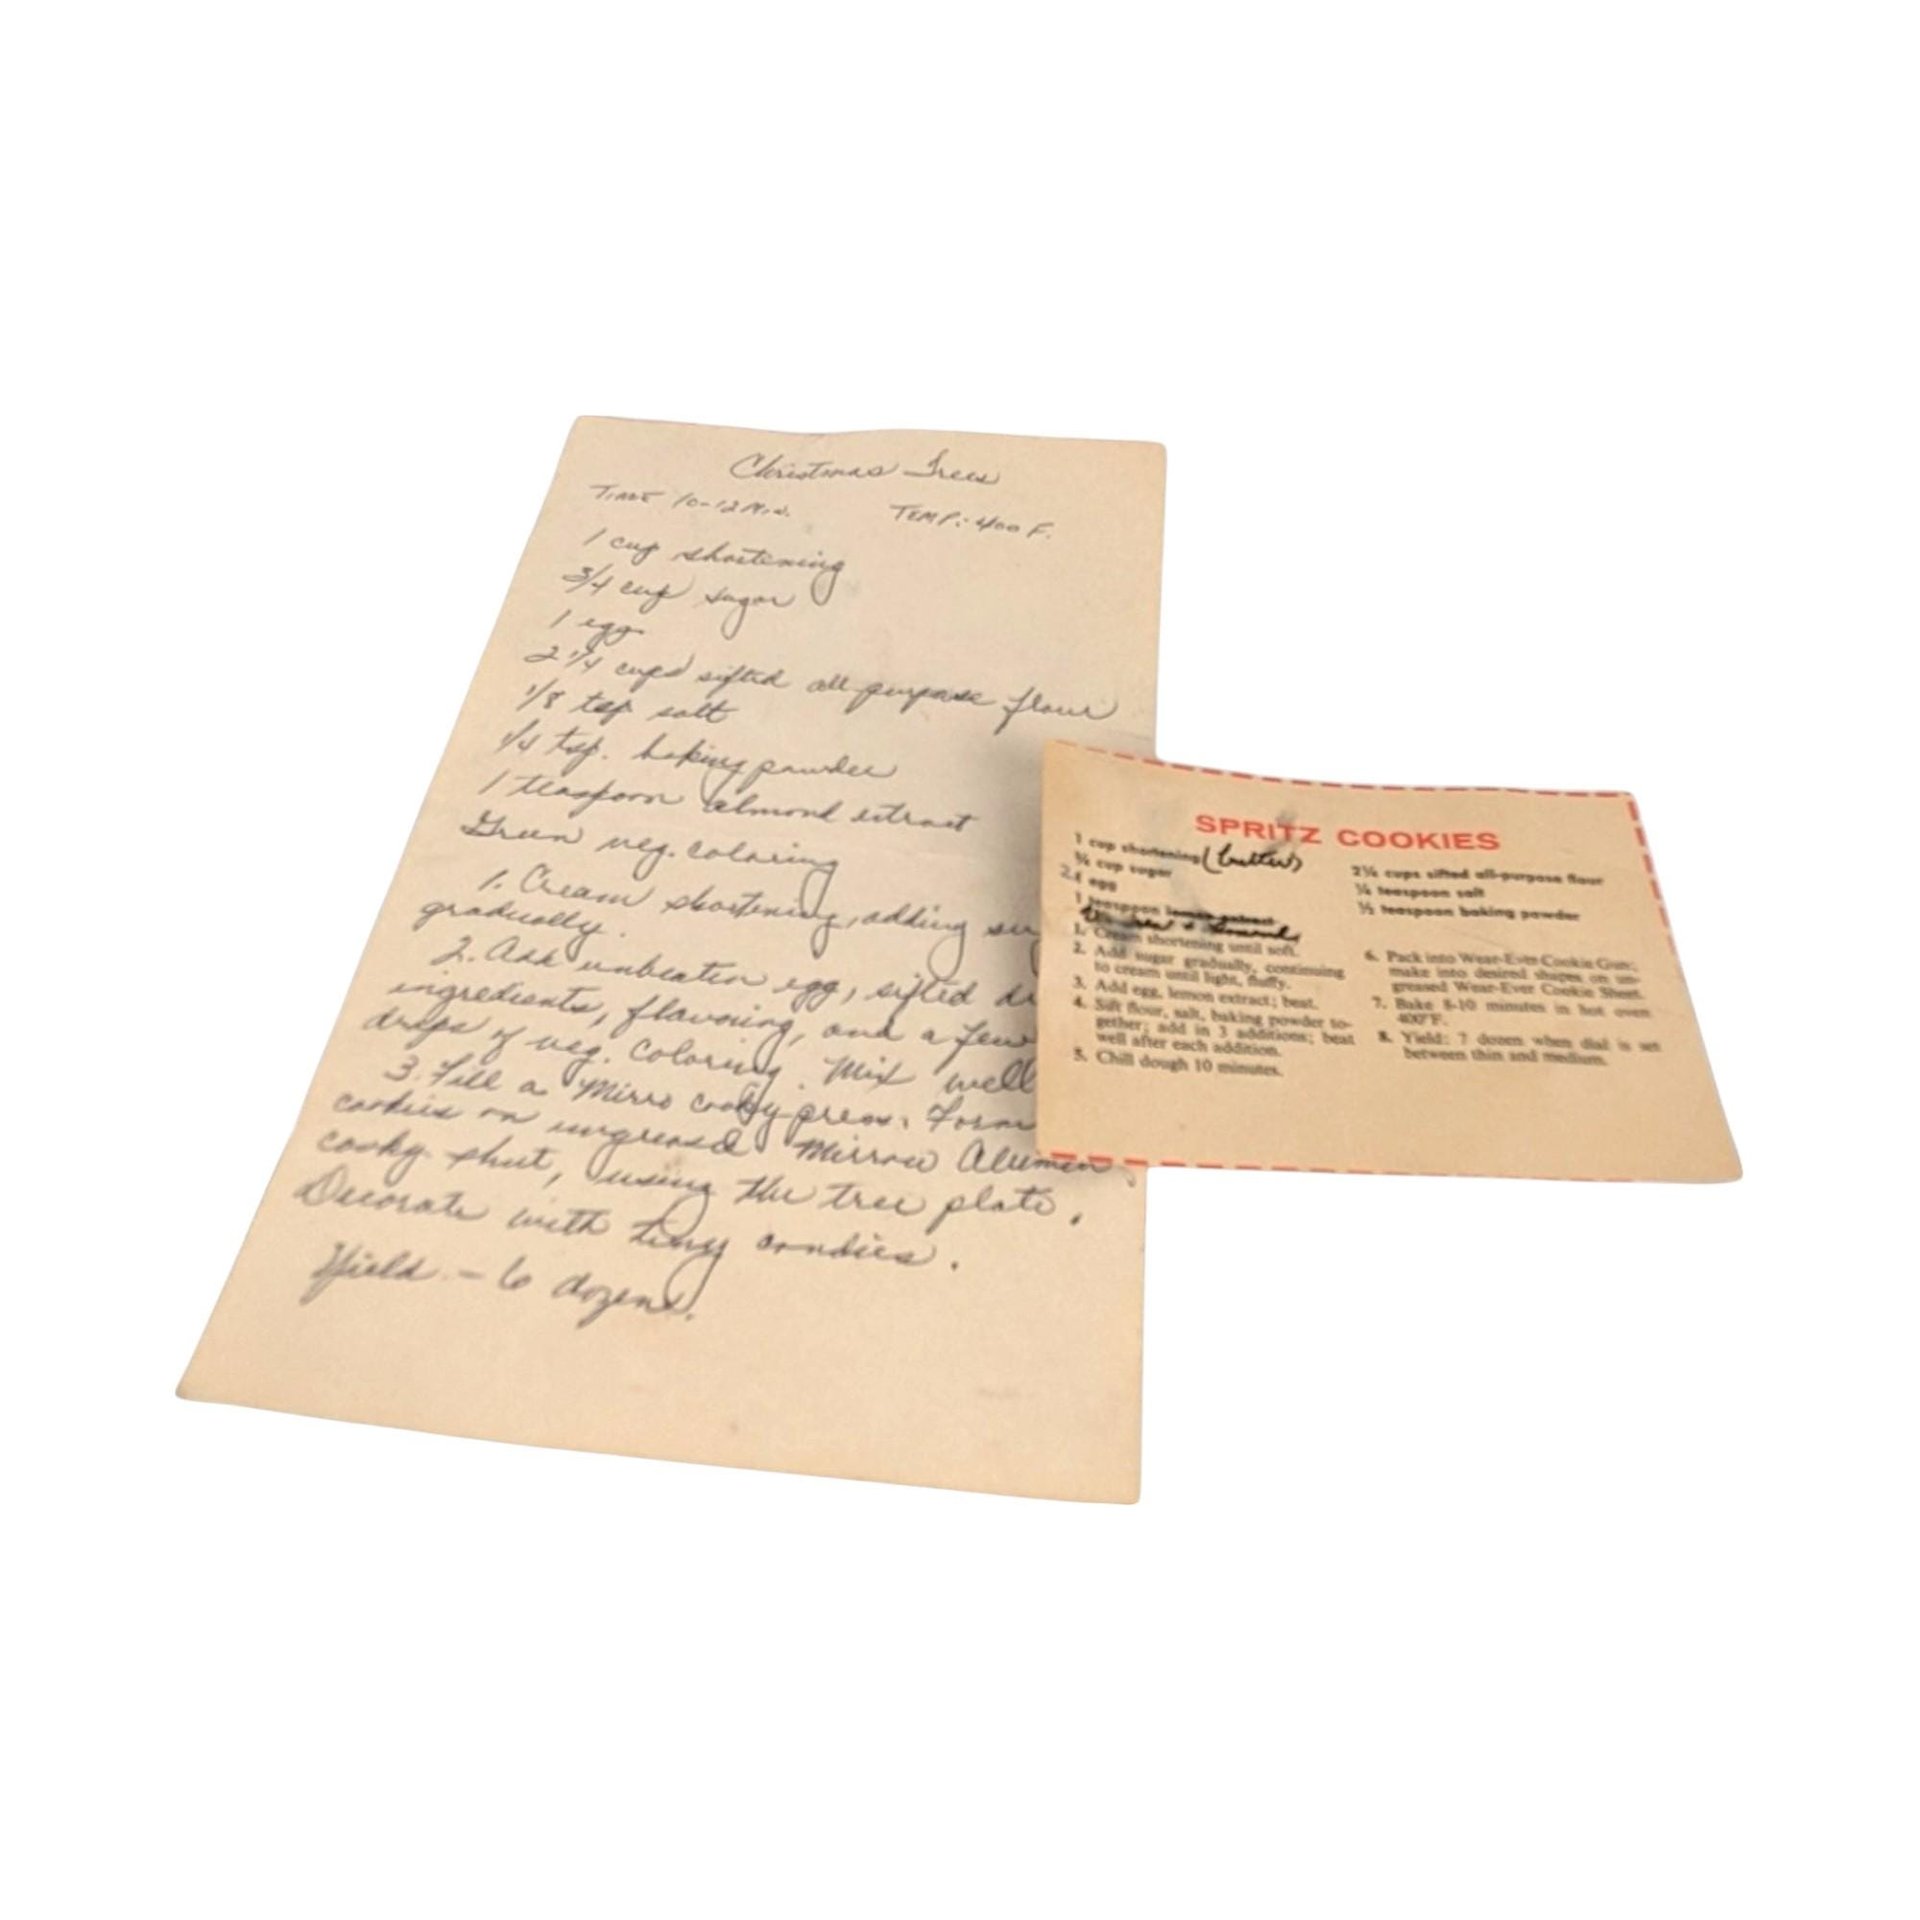 Christmas Trees
TIME 10-12 Min. TEMP: 400 F.
1 cup shortening
3/4 cup sugar
1 egg
2 1/4 cups sifted all purpose flour
1/8 tsp salt
1/4 tsp. baking powder
1 teaspoon almond extract
Green veg. coloring
1. Cream shortening, adding
gradually.
2. Add unbeaten egg, sifted
ingredients, flavoring, and a few
drops of veg. coloring. Mix well
3. Fill a Mirro cooky press. Form
cookies on ungreased Mirro
cooky sheet, using the tree plate.
Decorate with tiny candies.
Yield - 6 dozen.
SPRITZ COOKIES
1 cup shortening (butter)
¾ cup sugar
1 egg
1 teaspoon lemon extract
1. Cream shortening until soft.
2. Add sugar gradually, continuing
to cream until light, fluffy.
3. Add egg, lemon extract; beat.
4. Sift flour, salt, baking powder to-
gether; add in 3 additions; beat
well after each addition.
5. Chill dough 10 minutes.
2¼ cups sifted all-purpose flour
teaspoon salt
½ teaspoon baking powder
6. Pack into Wear-Ever Cookie Gun;
make into desired shapes on un-
greased Wear-Ever Cookie Sheet.
7. Bake 8-10 minutes in hot oven
400°F.
8. Yield: 7 dozen when dial is set
between thin and medium.